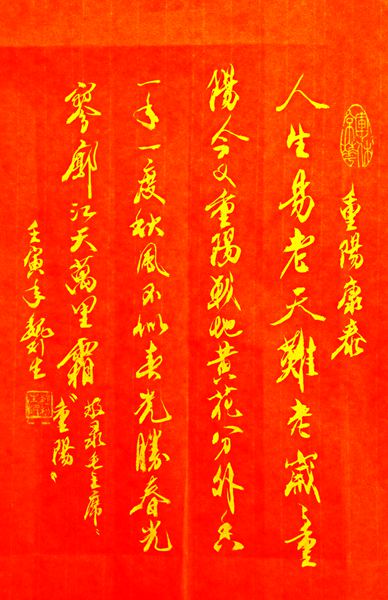 重陽康泰
人生易老天難老歲〻重
陽今又重陽戰地黄花分外香
一年一度秋風不似春光勝春光
寥廓江天萬里霜
敬录毛主席
"重陽"
壬寅年